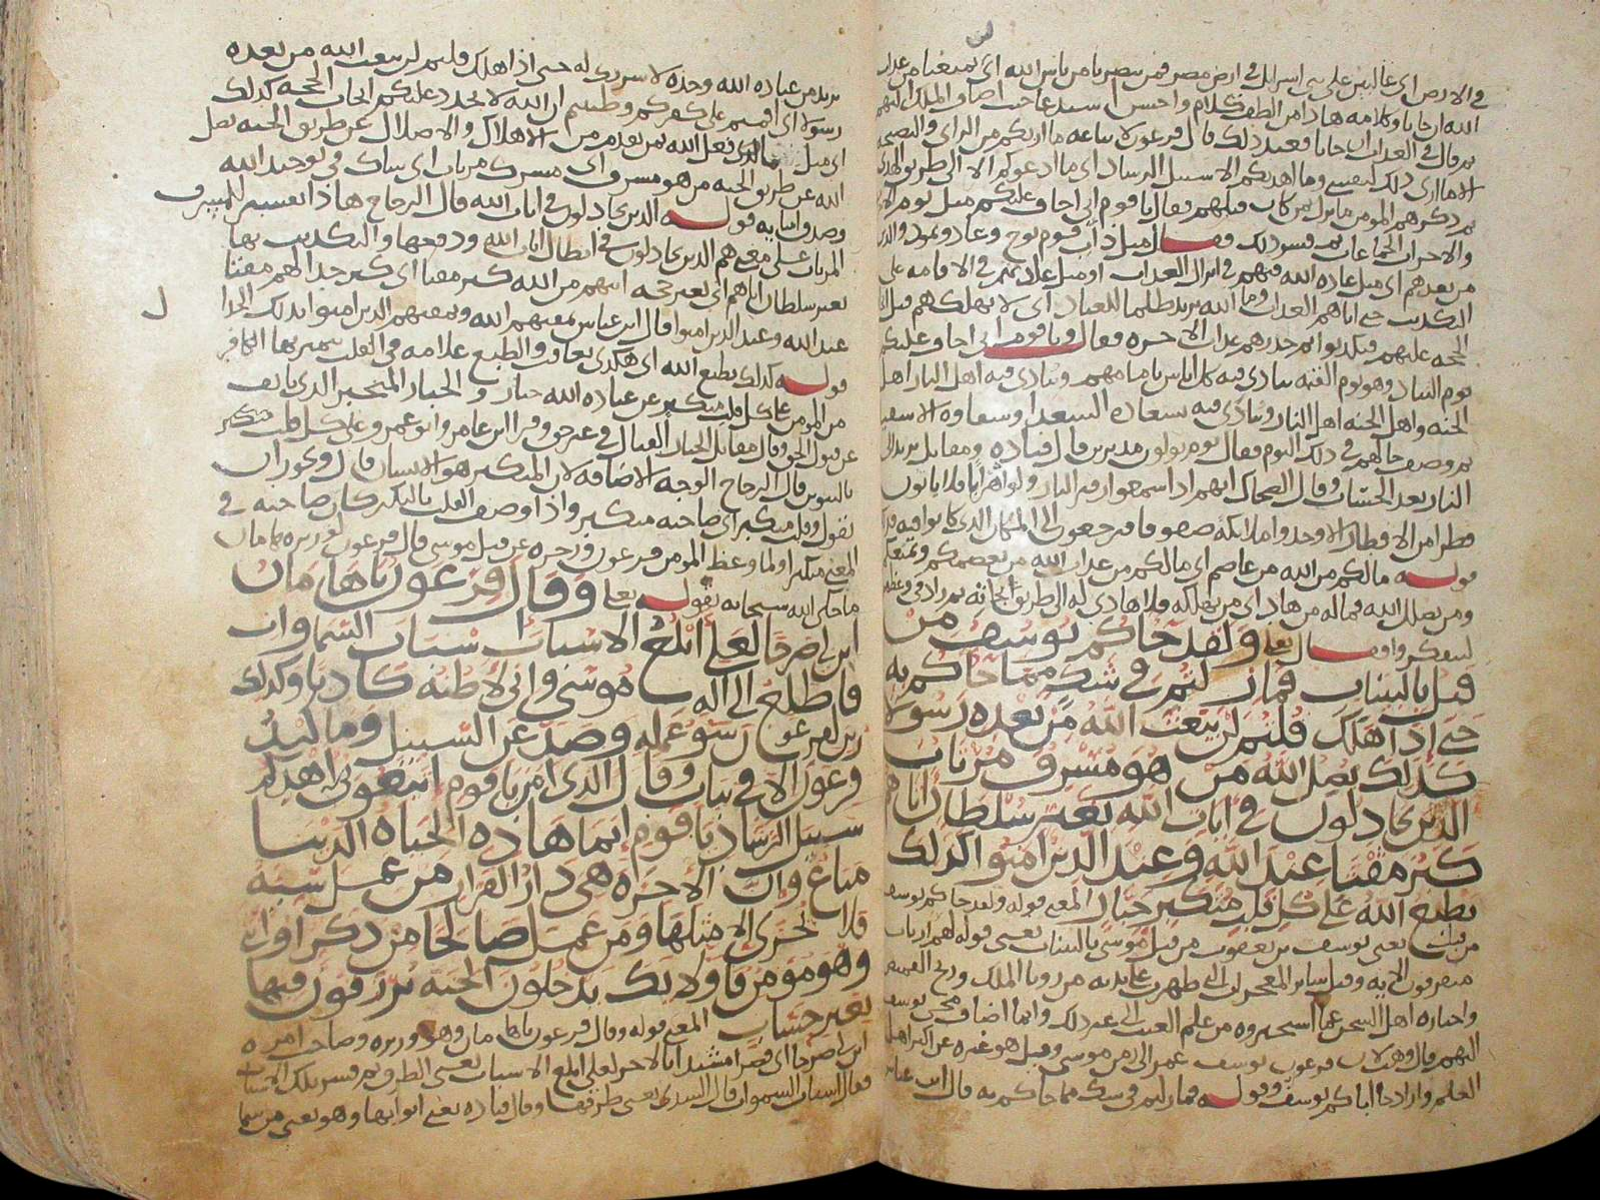 في الارض اي عالين على بني اسرائل في ارض مصر فمن ينصرنا من باس الله اي يمنعنا من عذاب
الله ان جانا وكلامه هاذا من الطف كلام واحسن
ثم قال في العذاب ان جانا فعند ذلك قال فرعون لاتباعه ما اريكم من الراي والنصيحه
الا ما ارى لنفسي وما اهديكم الا سبيل الرشاد اي ما ادعوكم الا الى طريق الهدى
ثم ذكرهم المومن ما نزل بمن كان قبلهم فقال يا قوم اني اخاف عليكم مثل يوم الا
والاحزاب الجماعات ثم فسر ذلك فقــال مثل داب قوم نوح وعاد وثمود والذين
من بعدهم اي مثل عاده الله فيهم في انزال العذاب او مثل عادتهم في الاقامه على
التكذيب حتى اتاهم العذاب وما الله يريد ظلما للعباد اي لا يهلكهم قبل
الحجه عليهم فيكذبوا ثم حذرهم عذاب الاخره فقال ويا قوم اني اخاف عليكم
يوم التناد وهو يوم القيمه ينادى فيه كل اناس بامامهم وينادى فيه اهل النار اهل
الجنه واهل الجنه اهل النار وينادى فيه بسعاده السعدا وشقاوه الاشقيا
ثم وصف حالهم في ذلك اليوم فقال يوم تولون مدبرين قال قتاده ومقاتل يريد الى
النار بعد الحساب وقال الضحاك انهم اذا سمعوا زفير النار ولوا هرابا فلا ياتون
قطرا من الاقطار الا وجدوا ملايكه صفوفا فيرجعون الى المكان الذي كانوا فيه
قولــه ما لكم من الله من عاصم اي ما لكم من عذاب الله من يعصمكم ويمنعكم
ومن يضلل الله فما له من هاد اي من يهلكه فلا هادي له الى طريق النجاه ثم زاد في وعظه
ليتفكروا فقــال تعلى ولقد جاكم يوسف من
قبل بالبينات فما زلتم في شك مما جاكم به
حتى اذا هلك قلتم لن يبعث الله من بعده رسولا
كذلك يضل الله من هو مسرف مرتاب
الذين يجادلون في ايات الله بغير سلطان اتاهم
كبر مقتا عند الله وعند الذين امنوا كذلك
يطبع الله على كل قلب متكبر جبار المعنى قوله ولقد جاكم يوسف
من قبل يعنى يوسف بن يعقوب من قبل موسى بالبينات يعنى قوله اارباب
متفرقون الايه وقيل ساير المعجزات التي ظهرت على يديه من رويا الملك
واخباره اهل السجن عما استخبروه من علم الغيب الى غير ذلك وانما اضاف مجي يوسف
اليهم قال وهب لان فرعون يوسف عمر الى زمن موسى وقيل هو غيره عن اكثر اهل
العلم واراد جا اباكم يوسف وقولــه فما زلتم في شك مما جاكم به قال ابن عباس
يريد من عباده الله وحده لا شريك له حتى اذا هلك قلتم لن يبعث الله من بعده
رسولا اي اقمتم على كفركم وظننتم ان الله لا يجدد عليكم ايجاب الحجه كذلك
اي مثل مالذي فعل الله بمن تقدم من الاهلاك والاضلال عن طريق الجنه يضل
الله عن طريق الجنه من هو مسرف اي مشرك مرتاب اي شاك في توحيد الله
وصدق انبيايه قولــه الذين يجادلون في ايات الله قال الزجاج هاذا تفسير للمسرف
المرتاب على معنى هم الذين يجادلون في ابطال ايات الله ودفعها والتكذيب بها
بغير سلطان اتاهم اي بغير حجه اتتهم من الله كبر مقتا اي كبر جدالهم مقتا
عند الله وعند الذين امنوا قال ابن عباس يمقتهم الله ويمقتهم الذين امنوا بذلك الجدال
قولــه كذلك يطبع الله اي هكذى يعاقب والطبع علامه في القلب يتميز بها الكافر
من المومن على كل قلب متكبر عن عباده الله جبار والجبار المتجبر الذي يانف
عن قبول الحق وقال مقاتل الجبار القتال في غير حق وقرا ابن عامر وابو عمرو على كل قلب متكبر
بالتنوين قال الزجاج الوجه الاضافه لان المتكبر هو الانسان قال ويجوز ان
تقول قلب متكبر اي صاحبه متكبر واذا وصف القلب بالتكبر كان صاحبه في
المعنى متكبرا ولما وعظ المومن فرعون وزجره عن قتل موسى قال فرعون لوزيره هامان
ما حكى الله سبحانه بقولــه تعلى وقال فرعون يا هامان
ابن لي صرحا لعلي ابلغ الاسباب اسباب السماوات
فاطلع الى اله موسى واني لاظنه كاذبا وكذلك
زين لفرعون سو عمله وصد عن السبيل وما كيد
فرعون الا في تباب وقال الذي امن يا قوم اتبعوني اهدكم
سبيل الرشاد يا قوم انما هاذه الحياه الدنيا
متاع وان الاخره هي دار القرار من عمل سيئه
فلا يجزى الا مثلها ومن عمل صالحا من ذكر او انثى
وهو مومن فاولايك يدخلون الجنه يرزقون فيها
بغير حساب المعنى قوله وقال فرعون يا هامان وهو وزيره وصاحب امره
ابن لي صرحا اي قصرا مشيدا بالاجر لعلي ابلغ الاسباب يعنى الطرق ثم فسر تلك الاسباب
فقال اسباب السموات قال السدي يعنى طرقها وقال قتاده يعنى ابوابها وهو يعنى من سما